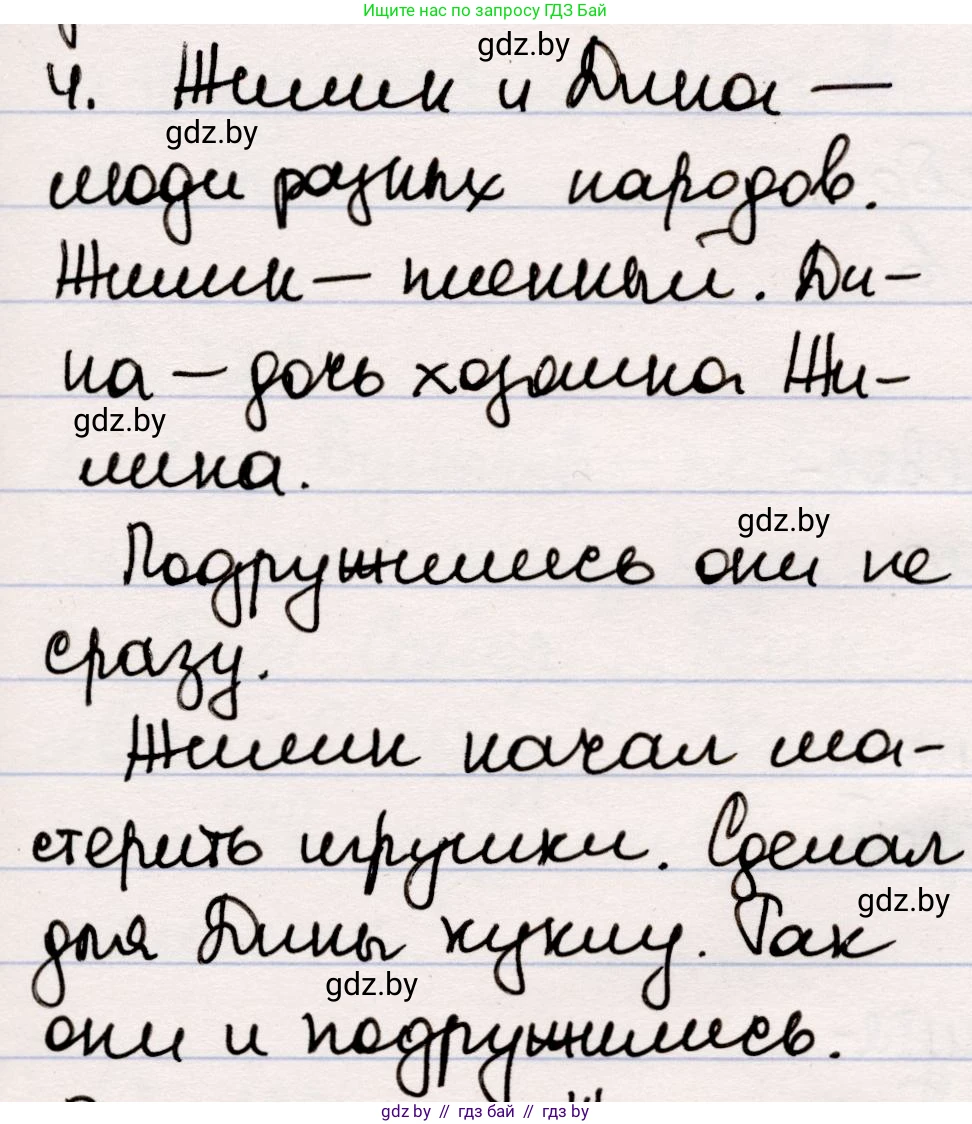 Ищите нас по запросу ГДЗ Бай
gdz.by
4. Жилин и Дина —
gdz.by
люди разных народов.
Жилин — пленный. Ди-
на — дочь хозяина Жи-
gdz.by
лина.
gdz.by
Подружились они не
сразу.
Жилин начал ма-
стерить игрушки. Сделал
gdz.by
для Дины куклу. Так
gdz.by
они и подружились.
gdz.by // гдз бай // гдз by